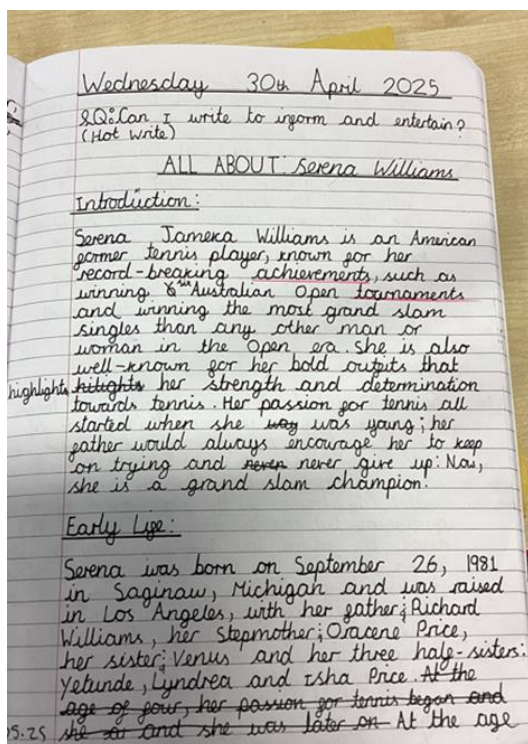 Wednesday 30th April 2025
LQ: Can I write to inform and entertain?
(Hot Write)
ALL ABOUT: Serena Williams
Introduction:
Serena Jameka Williams is an American
former tennis player, known for her
record-breaking achievements, such as
winning six Australian Open tournaments
and winning the most grand slam
singles than any other man or
woman in the Open era. She is also
well-known for her bold outfits that
highlights hilights her strength and determination
towards tennis. Her passion for tennis all
started when she way was young; her
father would always encourage her to keep
on trying and neven never give up: Now,
she is a grand slam champion.
Early Life:
Serena was born on September 26, 1981
in Saginaw, Michigan and was raised
in Los Angeles, with her father; Richard
Williams, her stepmother; Oracene Price,
her sister; Venus and her three half-sisters:
Yetunde, Lyndrea and Isha Price. At the
age of four, her passion for tennis began and
05.25 she and she was later on At the age